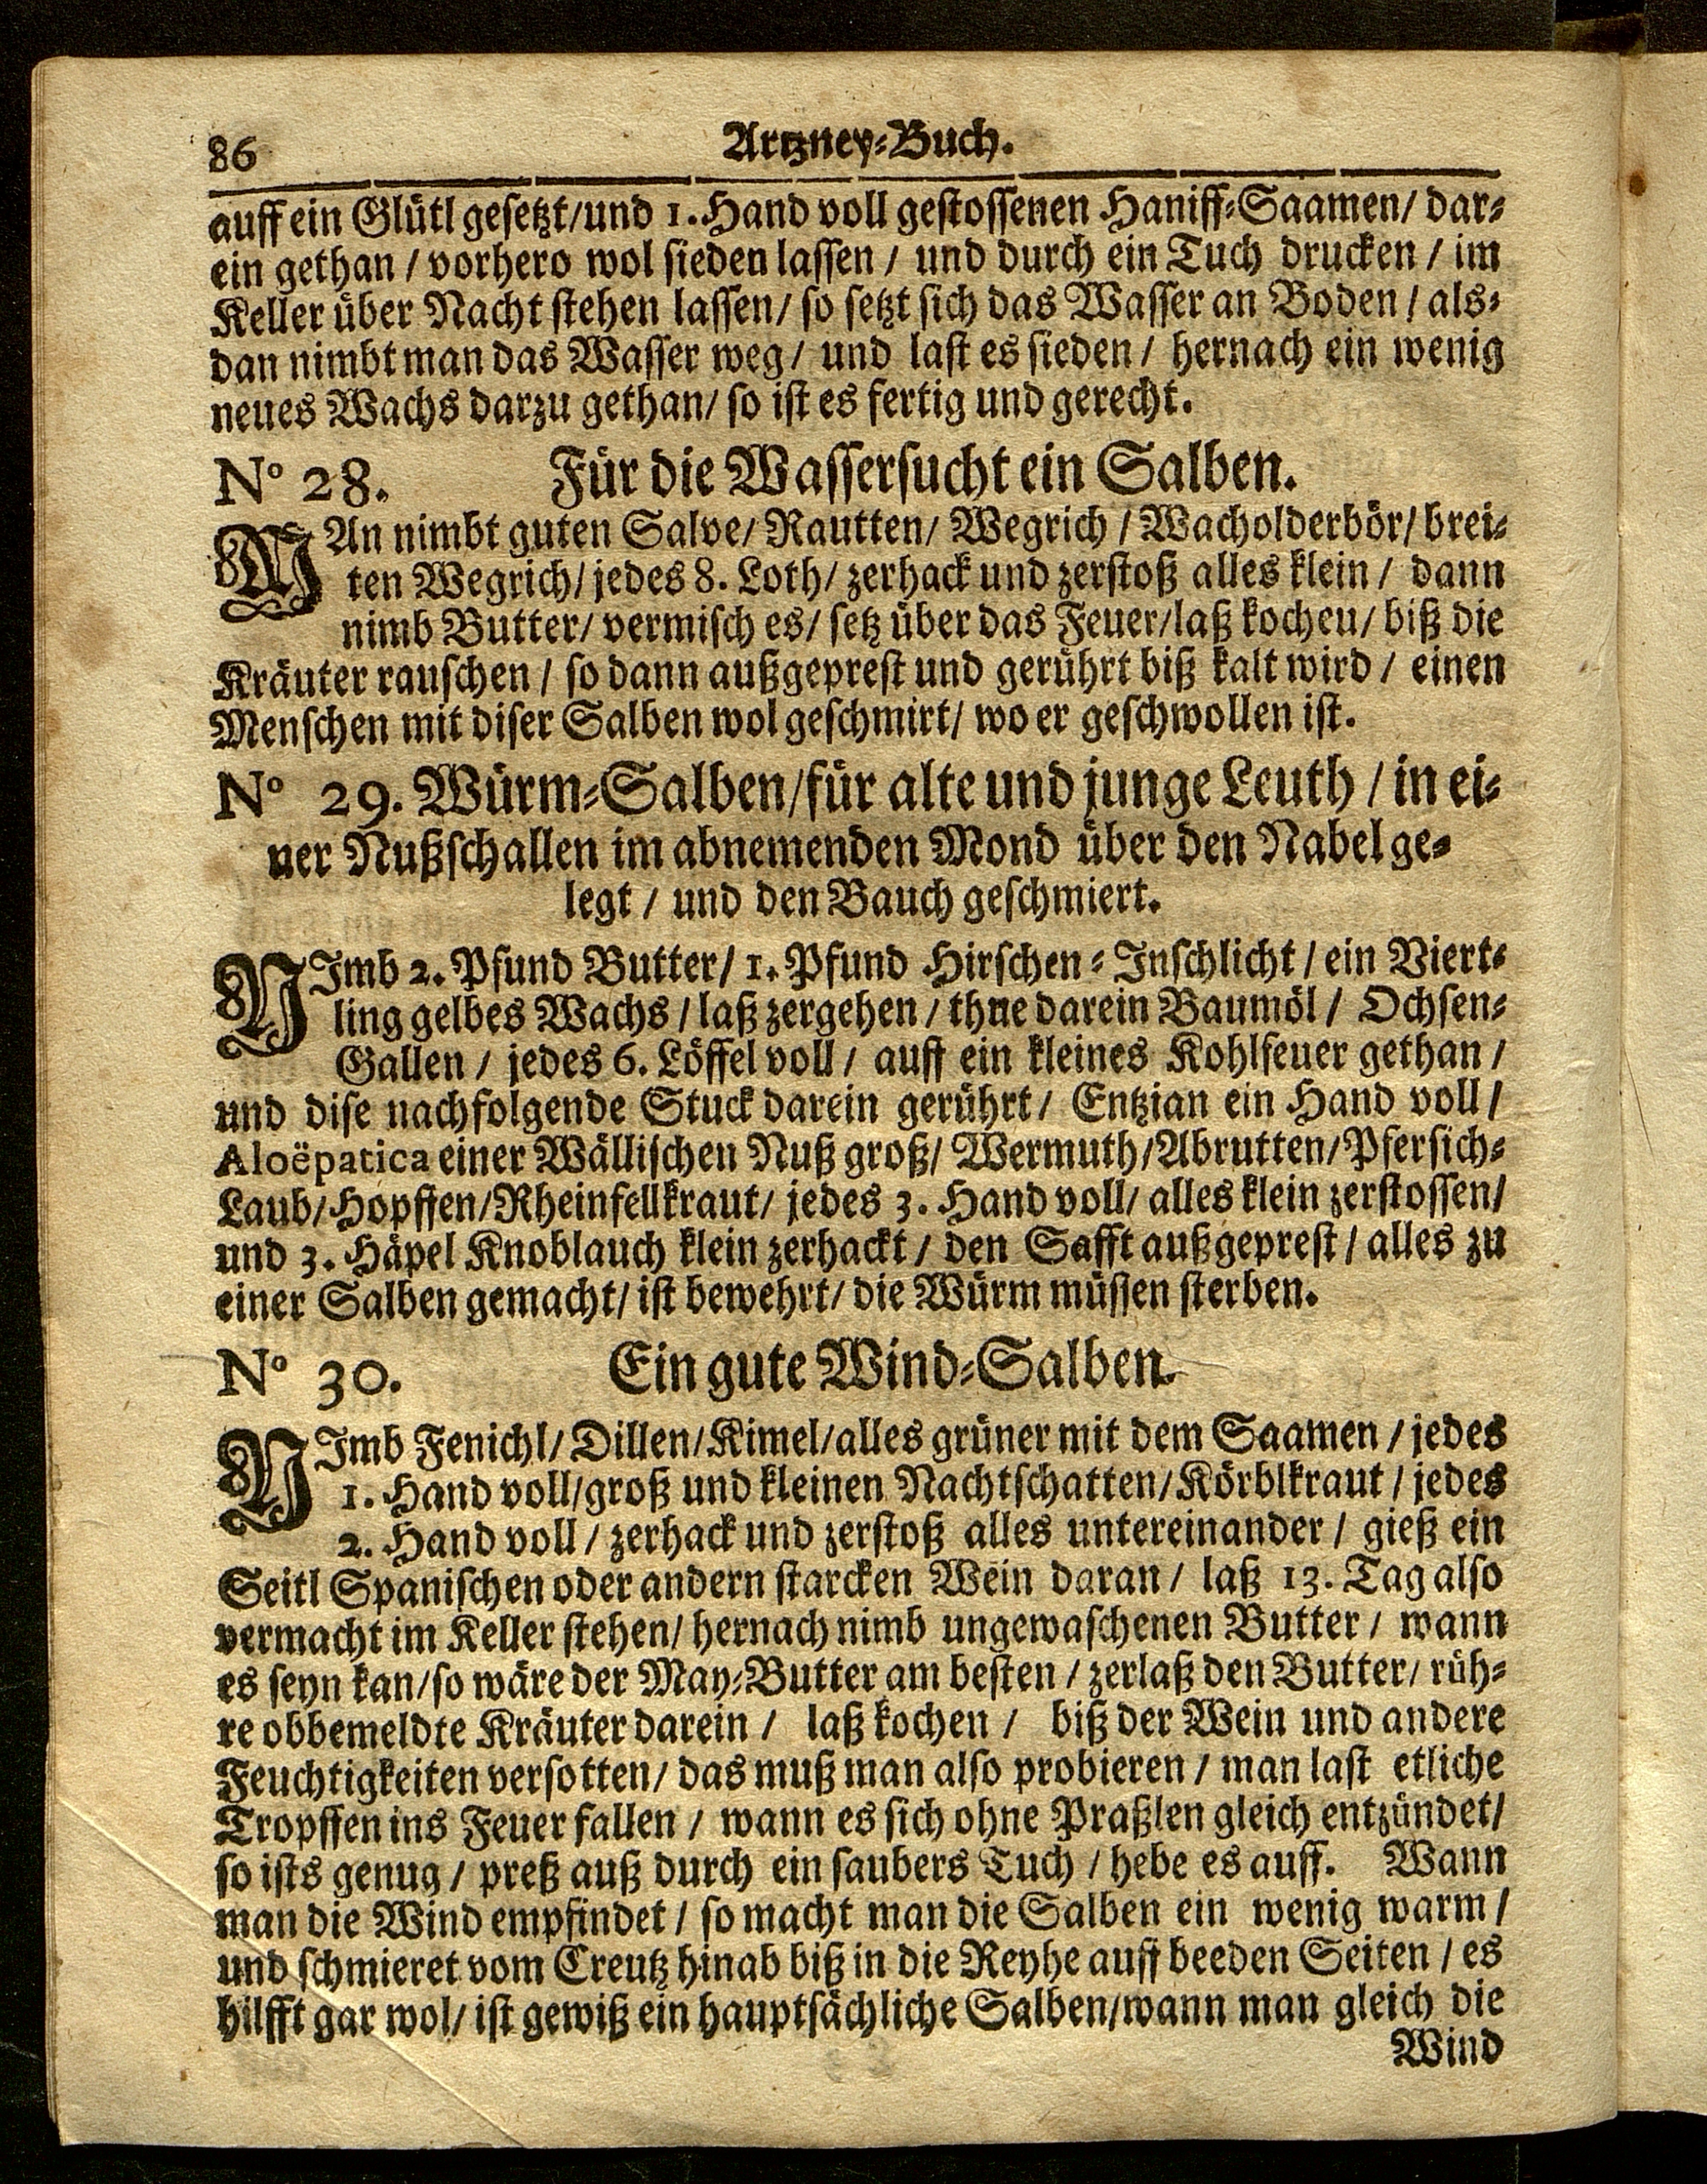 86
Artzney-Buch.
auff ein Glütl gesetzt/und 1. Hand voll gestossenen Haniff-Saamen/ dar-
ein gethan / vorhero wol sieden lassen / und durch ein Tuch drucken / im
Keller über Nacht stehen lassen/ so setzt sich das Wasser an Boden / als-
dan nimbt man das Wasser weg / und last es sieden / hernach ein wenig
neues Wachs darzu gethan/ so ist es fertig und gerecht.
N° 28. Für die Wassersucht ein Salben.
MAn nimbt guten Salve/ Rautten/ Wegrich / Wacholderbör/ brei-
ten Wegrich/ jedes 8. Loth/ zerhack und zerstoß alles klein / dann
nimb Butter/ vermisch es/ setz über das Feuer/laß kocheu/ biß die
Kräuter rauschen / so dann außgeprest und gerührt biß kalt wird / einen
Menschen mit diser Salben wol geschmirt/ wo er geschwollen ist.
N° 29. Würm-Salben/für alte und junge Leuth / in ei-
ner Nußschallen im abnemenden Mond über den Nabel ge-
legt / und den Bauch geschmiert.
NImb 2. Pfund Butter/ 1. Pfund Hirschen-Inschlicht / ein Viert-
ling gelbes Wachs / laß zergehen / thue darein Baumöl / Ochsen-
Gallen / jedes 6. Löffel voll / auff ein kleines Kohlfeuer gethan /
und dise nachfolgende Stuck darein gerührt / Entzian ein Hand voll /
Aloëpatica einer Wällischen Nuß groß/ Wermuth/Abrutten/Pfersich-
Laub/Hopffen/Rheinfellkraut/ jedes 3. Hand voll/ alles klein zerstossen/
und 3. Häpel Knoblauch klein zerhackt / den Safft außgeprest / alles zu
einer Salben gemacht/ ist bewehrt/ die Würm müssen sterben.
N° 30. Ein gute Wind-Salben.
NImb Fenichl/ Dillen/Kimel/alles grüner mit dem Saamen / jedes
1. Hand voll/groß und kleinen Nachtschatten/Körblkraut / jedes
2. Hand voll / zerhack und zerstoß alles untereinander / gieß ein
Seitl Spanischen oder andern starcken Wein daran / laß 13. Tag also
vermacht im Keller stehen/ hernach nimb ungewaschenen Butter / wann
es seyn kan/so wäre der May-Butter am besten / zerlaß den Butter/ rüh-
re obbemeldte Kräuter darein / laß kochen / biß der Wein und andere
Feuchtigkeiten versotten/ das muß man also probieren / man last etliche
Tropffen ins Feuer fallen / wann es sich ohne Praßlen gleich entzündet/
so ists genug / preß auß durch ein saubers Tuch / hebe es auff. Wann
man die Wind empfindet / so macht man die Salben ein wenig warm /
und schmieret vom Creutz hinab biß in die Reyhe auff beeden Seiten / es
hilfft gar wol/ ist gewiß ein hauptsächliche Salben/wann man gleich die
Wind